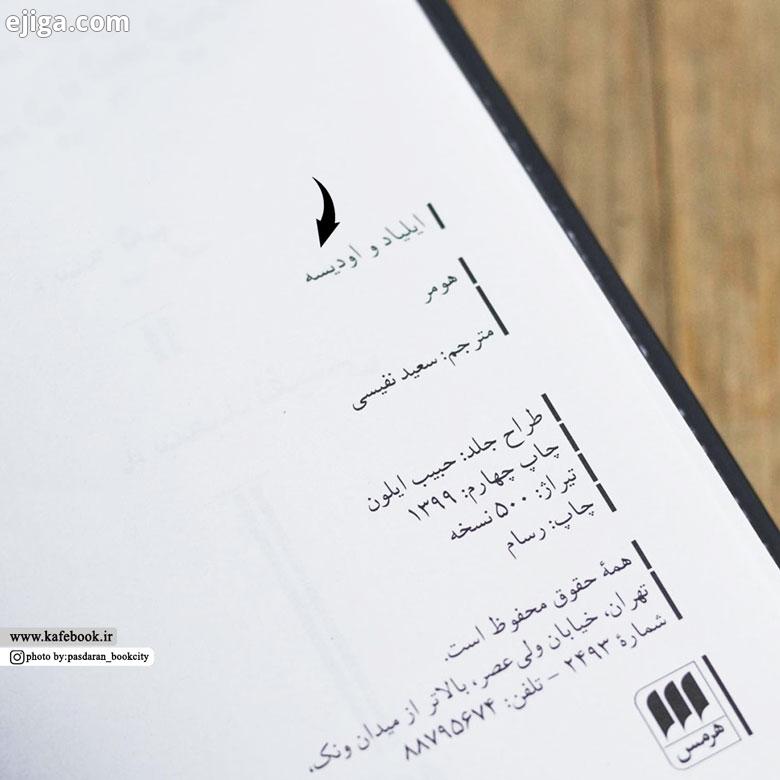 ejiga.com
ایلیاد و اودیسه
هومر
مترجم: سعید نفیسی
طراح جلد: حبیب ایلون
چاپ چهارم: ۱۳۹۹
تیراژ: ۵۰۰ نسخه
چاپ: رسام
همهٔ حقوق محفوظ است.
تهران، خیابان ولی‌عصر، بالاتر از میدان ونک،
شمارهٔ ۲۴۹۳ - تلفن: ۸۸۷۹۵۶۷۴
هرمس
www.kafebook.ir
photo by:pasdaran_bookcity